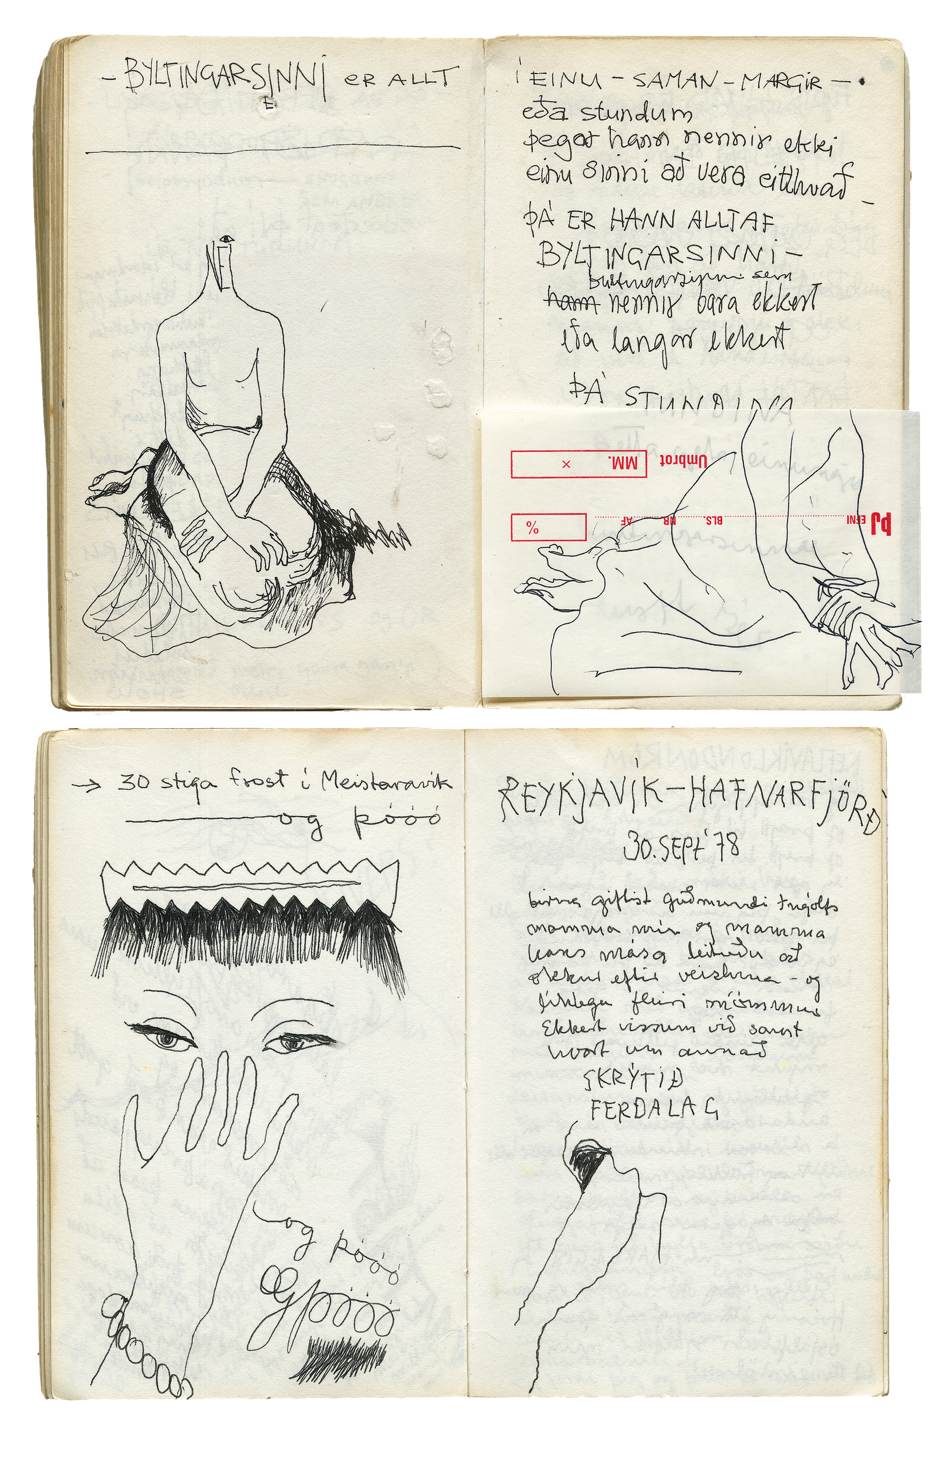 – BYLTINGARSINNI ER ALLT
E
NEI
Í EINU – SAMAN – MARGIR –
eða stundum
þegar hann nennir ekki
einu sinni að vera eitthvað –
ÞÁ ER HANN ALLTAF
BYLTINGARSINNI –
byltingarsinni sem
hann nennir bara ekkert
eða langar ekkert
ÞÁ STUNDINA
Umbrot MM. ×
EFNI BLS. NR. AF %
→ 30 stiga frost í Meistaravík
og þóóó
og þóóó
Ogþóóó
REYKJAVÍK – HAFNARFJÖRÐ
30. SEPT '78
birna giftist guðmundi Ingólfs
mamma mín og mamma
hans mása leituðu að
okkur eftir veizluna – og
líklega fleiri mömmur
Ekkert vissum við samt
hvort um annað
SKRÝTIÐ
FERÐALAG